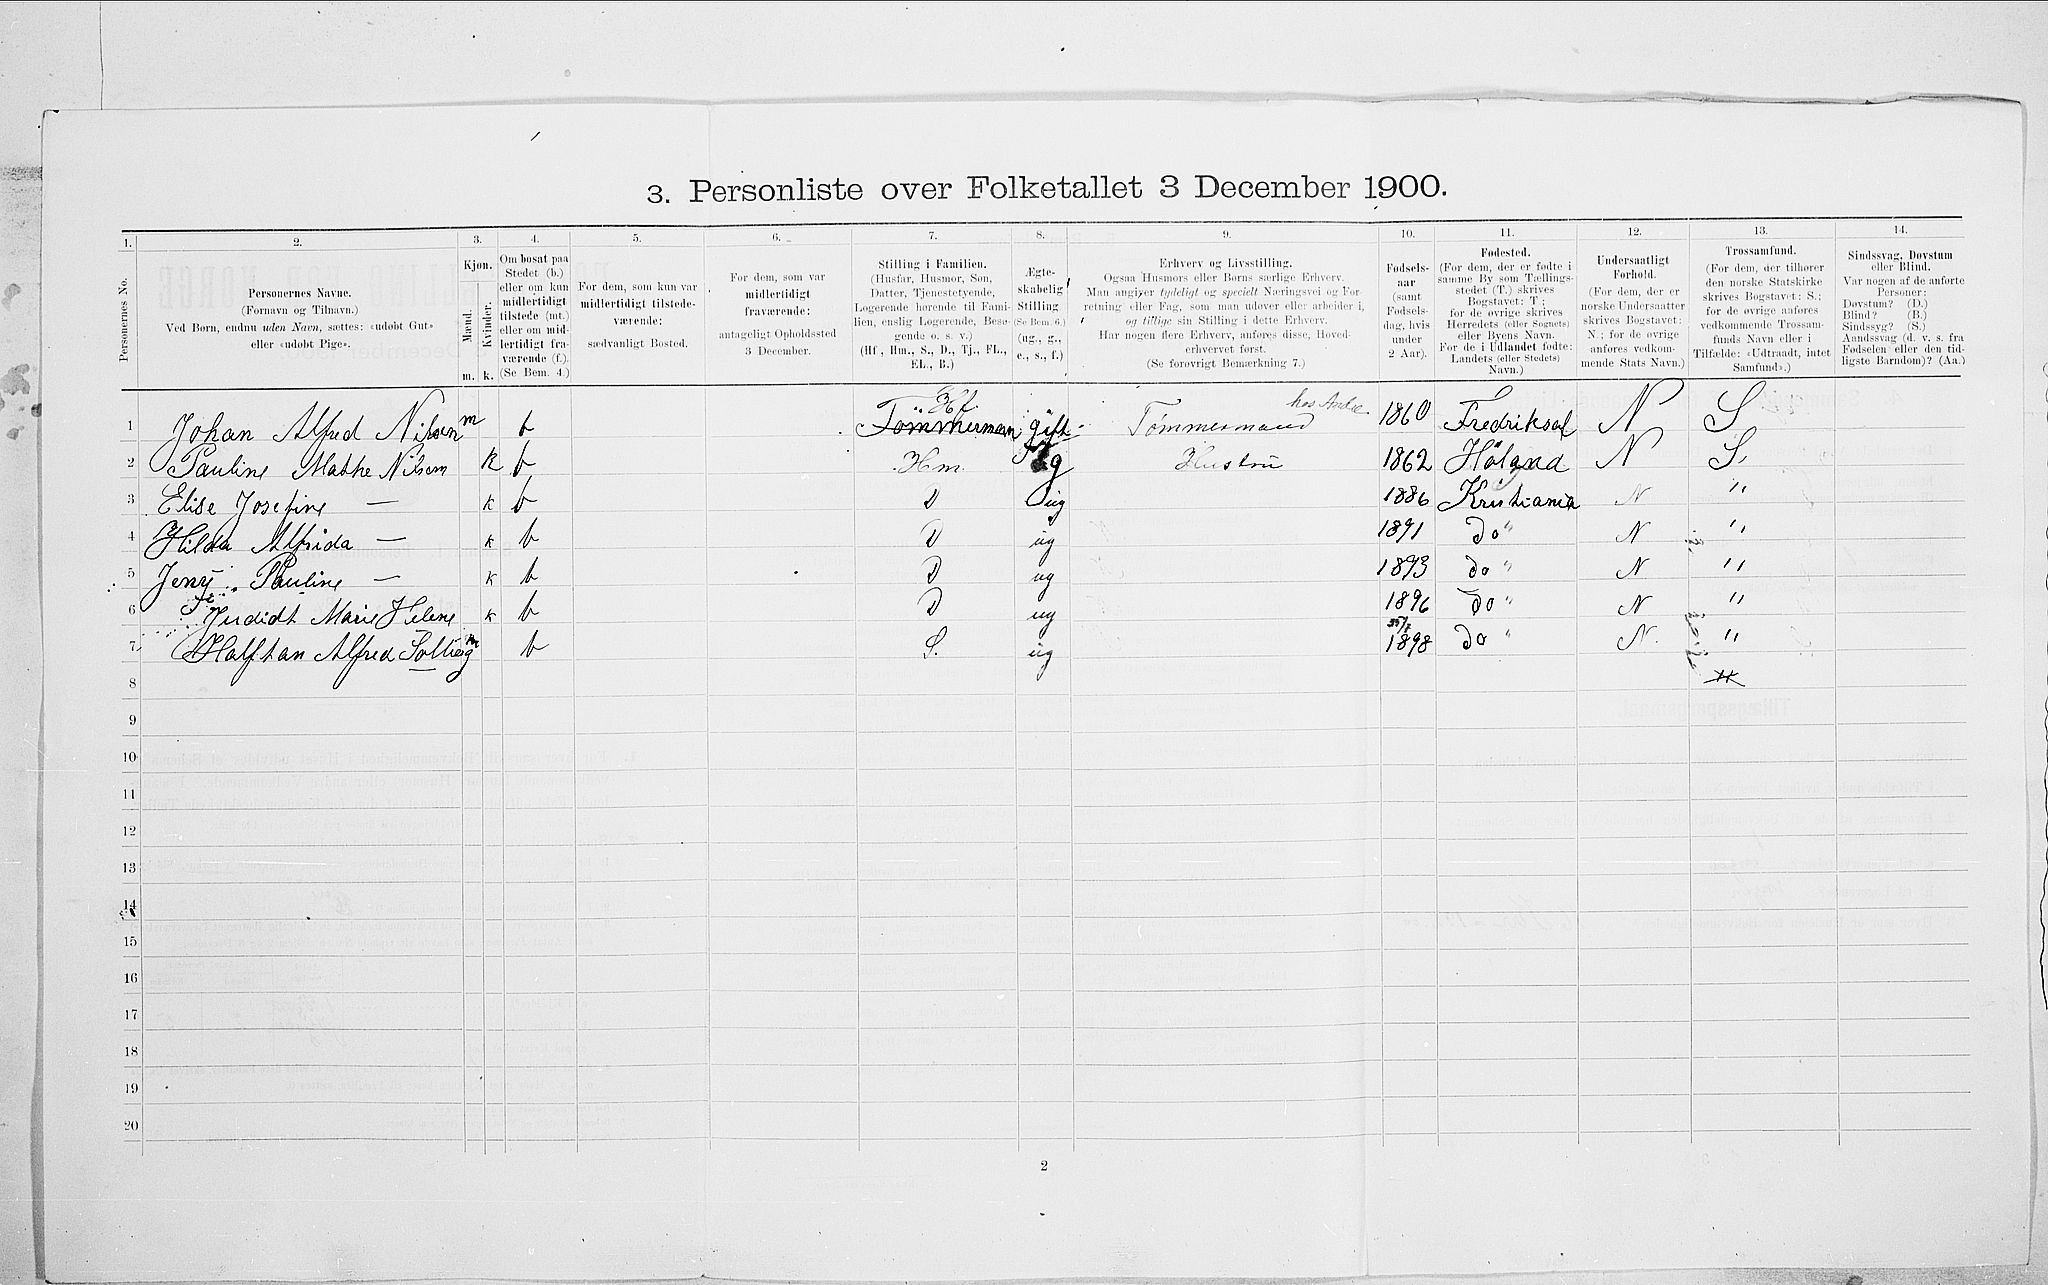 3. Personliste over Folketallet 3 December 1900.
1. 2. 3. 4. 5. 6. 7. 8. 9. 10. 11. 12. 13. 14.
Personernes No.
Personernes Navne.
(Fornavn og Tilnavn.)
Ved Børn, endnu uden Navn, sættes: «udøbt Gut»
eller «udøbt Pige».
Kjøn.
Mænd.
Kvinder.
m. k.
Om bosat paa
Stedet (b.)
eller om kun
midlertidigt
tilstede (mt.)
eller om mid-
lertidigt fra-
værende (f.).
(Se Bem. 4.)
For dem, som kun var
midlertidigt tilstede-
værende:
sædvanligt Bosted.
For dem, som var
midlertidigt
fraværende:
antageligt Opholdssted
3 December.
Stilling i Familien.
(Husfar, Husmor, Søn,
Datter, Tjenestetyende,
Logerende hørende til Fami-
lien, enslig Logerende, Besø-
gende o. s. v.)
(Hf., Hm., S., D., Tj., FL.,
EL., B.)
Ægte-
skabelig
Stilling.
(Se Bem. 6.)
(ug., g.,
e., s., f.)
Erhverv og Livsstilling.
Ogsaa Husmors eller Børns særlige Erhverv.
Man angiver tydeligt og specielt Næringsvei og For-
retning eller Fag, som man udøver eller arbeider i,
og tillige sin Stilling i dette Erhverv.
Har nogen flere Erhverv, anføres disse, Hoved-
erhvervet først.
(Se forøvrigt Bemærkning 7.)
Fødsels-
aar
(samt
Fødsels-
dag, hvis
under
2 Aar).
Fødested.
(For dem, der er fødte i
samme By som Tællings-
stedet (T.) skrives
Bogstavet: T;
for de øvrige skrives
Herredets (eller Sognets)
eller Byens Navn.
For de i Udlandet fødte:
Landets (eller Stedets)
Navn.)
Undersaatligt
Forhold.
(For dem, der er
norske Undersaatter
skrives Bogstavet:
N.; for de øvrige
anføres vedkom-
mende Stats Navn.)
Trossamfund.
(For dem, der tilhører
den norske Statskirke
skrives Bogstavet: S.;
for de øvrige anføres
vedkommende Trossam-
funds Navn eller i
Tilfælde: «Udtraadt, intet
Samfund».)
Sindssvag, Døvstum
eller Blind.
Var nogen af de anførte
Personer:
Døvstum? (D.)
Blind? (B.)
Sindssyg? (S.)
Aandssvag (d. v. s. fra
Fødselen eller den tid-
ligste Barndom)? (Aa.)
Hf.
1 Johan Alfred Nilsen m b Tömmerman gift Tømmermand 1860 N S
2 Pauline Nilsen k b Hm. g Hustru 1862 Høland N S.
3 Elise Josefine — k b D ug 1886 Kristiania N "
4 Hilda Alfrida — k b D ug 1891 do " N "
5 Jeny Pauline — k b D ug 1893 do " N "
6 Judidt Marie Helene k b D ug 1896 do " N "
7 Halftan Alfred Solberg m b S. ug 1898 do " N. "
8
9
10
11
12
13
14
15
16
17
18
19
20
2